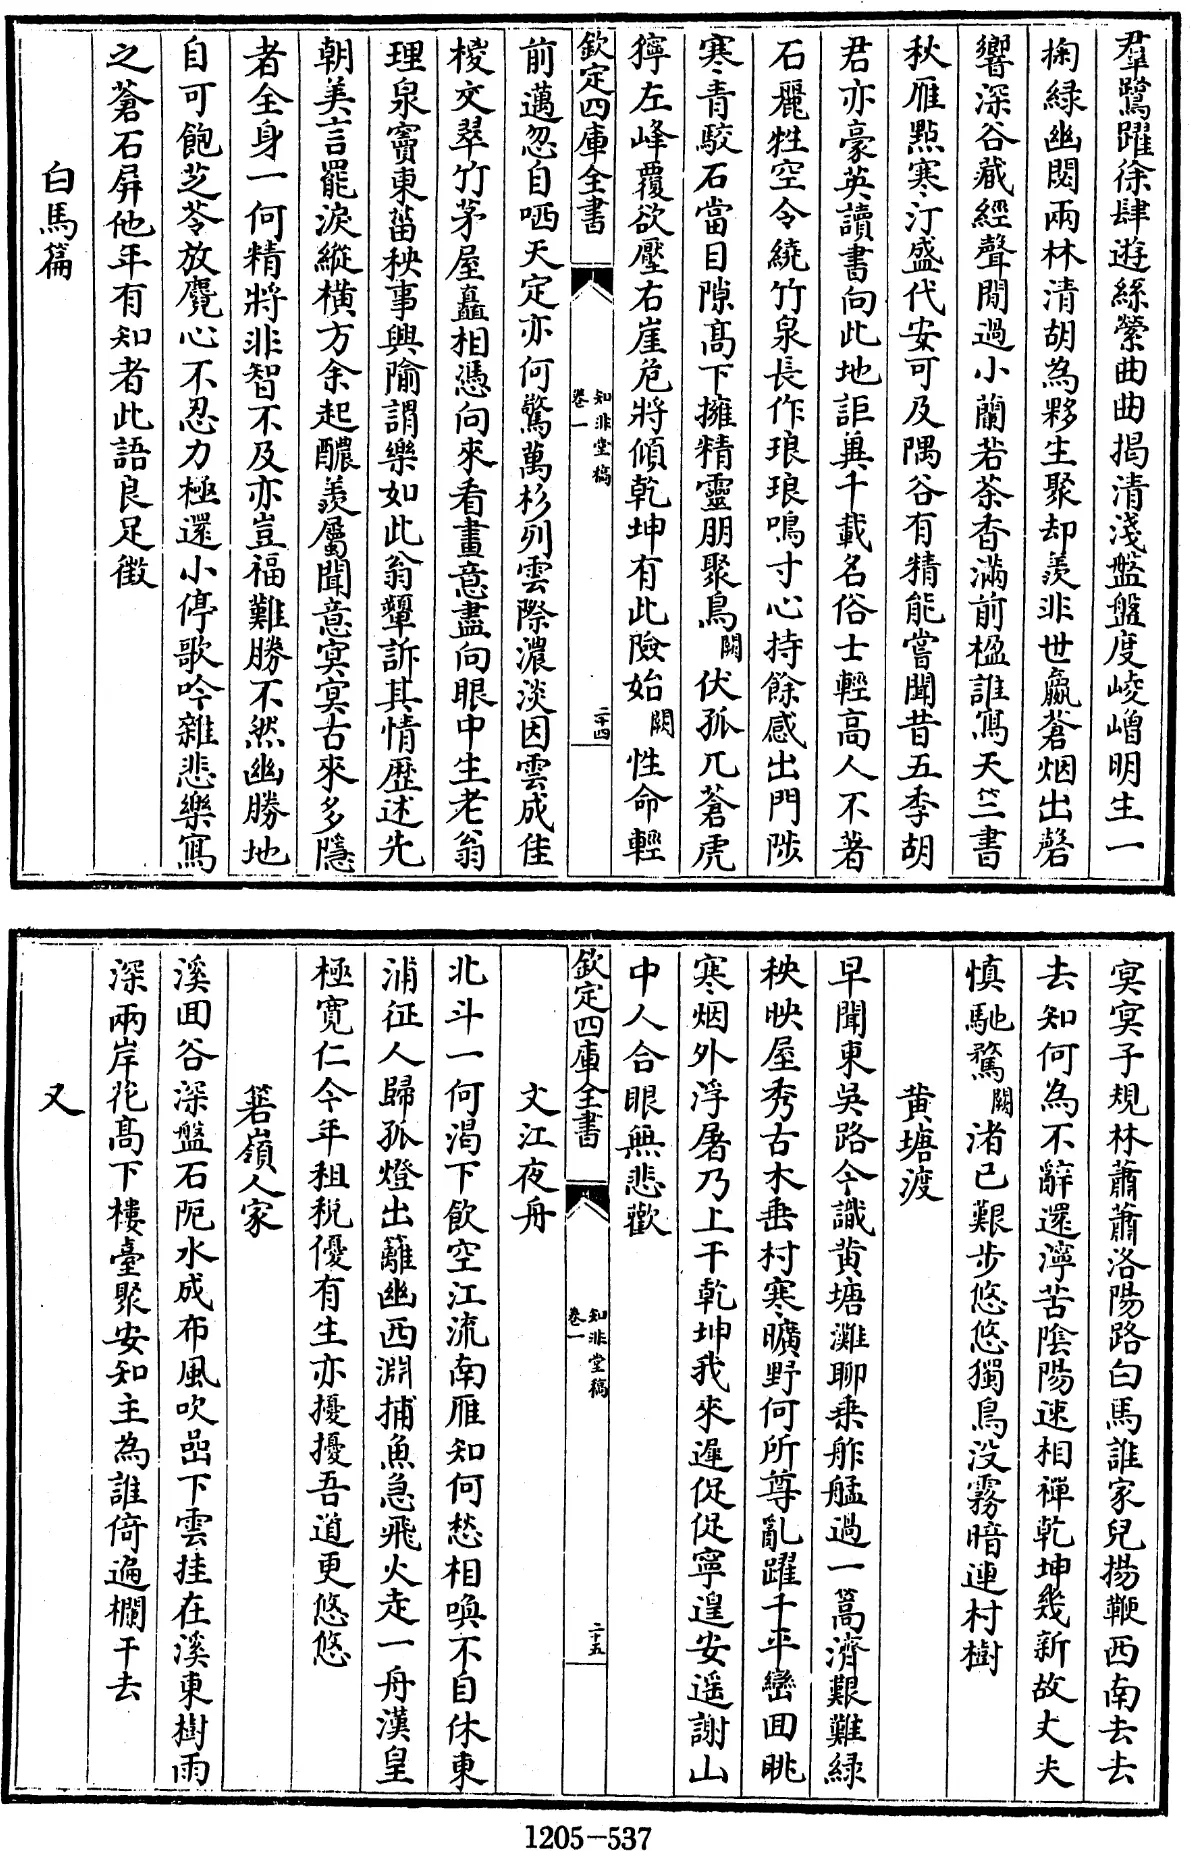 羣鷺躍徐肆遊絲縈曲曲揭清淺盤盤度崚嶒明生一
掬緑幽閟兩林清胡為夥生聚却羨非世羸蒼烟出磬
響深谷藏經聲閒過小蘭若茶香滿前楹誰寫天竺書
秋雁㸃寒汀盛代安可及隅谷有精能嘗聞昔五季胡
君亦豪英讀書向此地詎與千載名俗士輕高人不著
石麗牲空令繞竹泉長作琅琅鳴寸心持餘感出門陟
寒青駮石當目隙髙下擁精靈朋聚鳥闕伏孤兀蒼虎
獰左峰覆欲壓右崖危將傾乾坤有此險始闕性命輕
欽定四庫全書
知非堂稿
卷一
二十四
前邁忽自哂天定亦何驚萬杉列雲際濃淡因雲成佳
棱交翠竹茅屋矗相憑向來看畫意盡向眼中生老翁
理泉竇東菑秧事興隃謂樂如此翁顰訴其情歴述先
朝美言罷淚縱橫方余起醲羨屬聞意冥冥古來多隱
者全身一何精將非智不及亦豈福難勝不然幽勝地
自可飽芝苓放麑心不忍力極還小停歌吟雜悲樂寫
之蒼石屏他年有知者此語良足徴
白馬篇
冥冥子規林蕭蕭洛陽路白馬誰家兒揚鞭西南去去
去知何為不辭還濘苦陰陽速相禪乾坤幾新故丈夫
慎馳騖闕渚已艱步悠悠獨鳥没霧暗連村樹
黄塘渡
早聞東吳路今識黄塘灘聊乗舴艋過一篙濟艱難緑
秧映屋秀古木垂村寒曠野何所尊亂躍千平巒回眺
寒烟外浮屠乃上干乾坤我來遲促促寧遑安遥謝山
中人合眼無悲歡
欽定四庫全書
知非堂稿
卷一
二十五
文江夜舟
北斗一何渴下飲空江流南雁知何愁相喚不自休東
浦征人歸孤燈出籬幽西淵捕魚急飛火走一舟漢皇
極寛仁今年租税優有生亦擾擾吾道更悠悠
箬嶺人家
溪回谷深盤石阨水成布風吹嵒下雲挂在溪東樹雨
深兩岸花髙下樓臺聚安知主為誰倚遍欄干去
又
1205-537